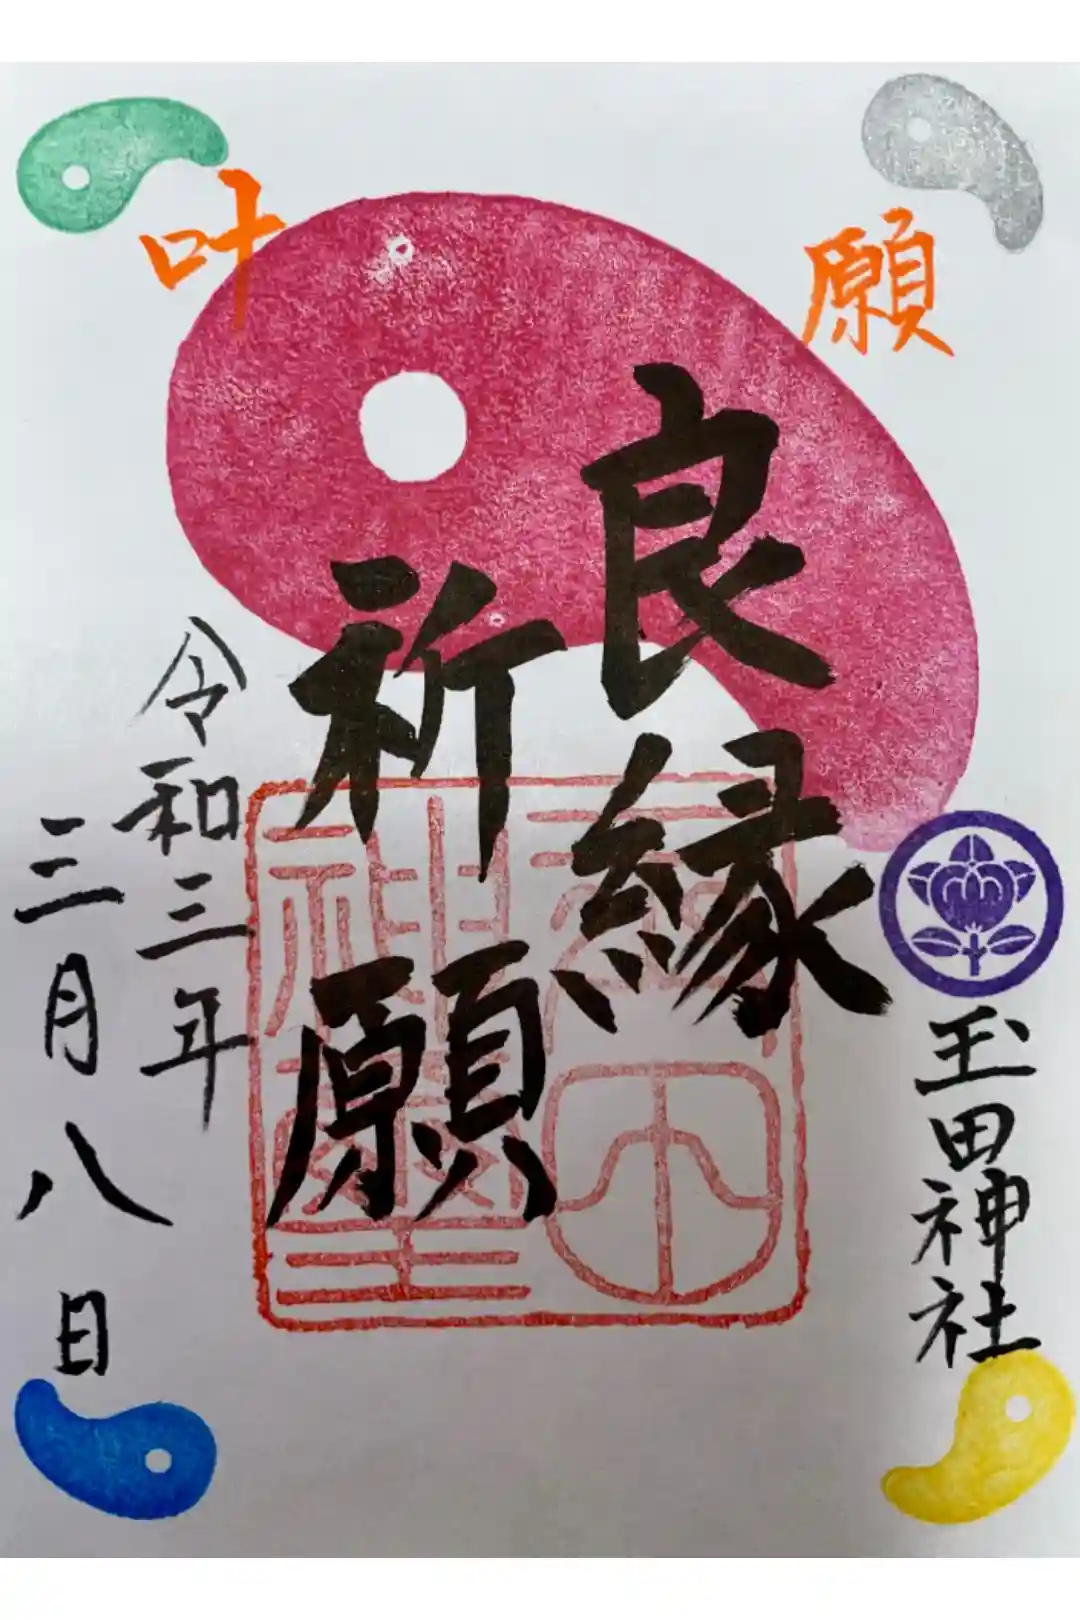 願
叶
玉田神社
良縁
祈願
令和三年
三月八日